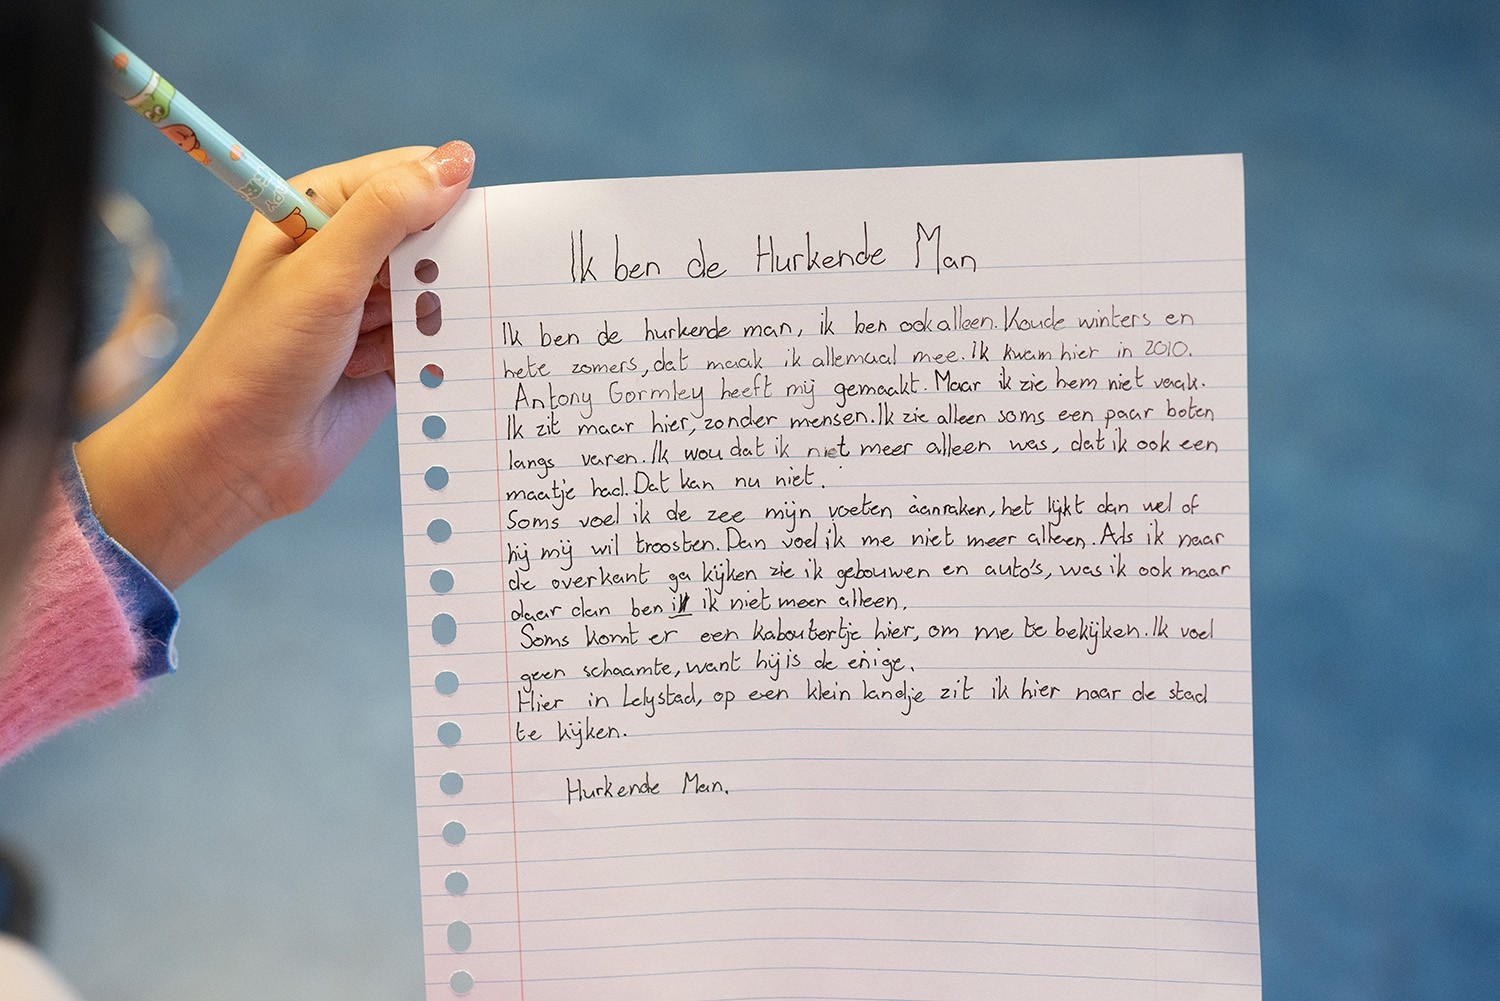 Ik ben de Hurkende Man
Ik ben de hurkende man, ik ben ook alleen. Koude winters en
hete zomers, dat maak ik allemaal mee. Ik kwam hier in 2010.
Antony Gormley heeft mij gemaakt. Maar ik zie hem niet vaak.
Ik zit maar hier, zonder mensen. Ik zie alleen soms een paar boten
langs varen. Ik wou dat ik niet meer alleen was, dat ik ook een
maatje had. Dat kan nu niet.
Soms voel ik de zee mijn voeten aanraken, het lijkt dan wel of
hij mij wil troosten. Dan voel ik me niet meer alleen. Als ik naar
de overkant ga kijken zie ik gebouwen en auto's, was ik ook maar
daar dan ben ik niet meer alleen.
Soms komt er een kaboutertje hier, om me te bekijken. Ik voel
geen schaamte, want hij is de enige.
Hier in Lelystad, op een klein landje zit ik hier naar de stad
te kijken.
Hurkende Man.